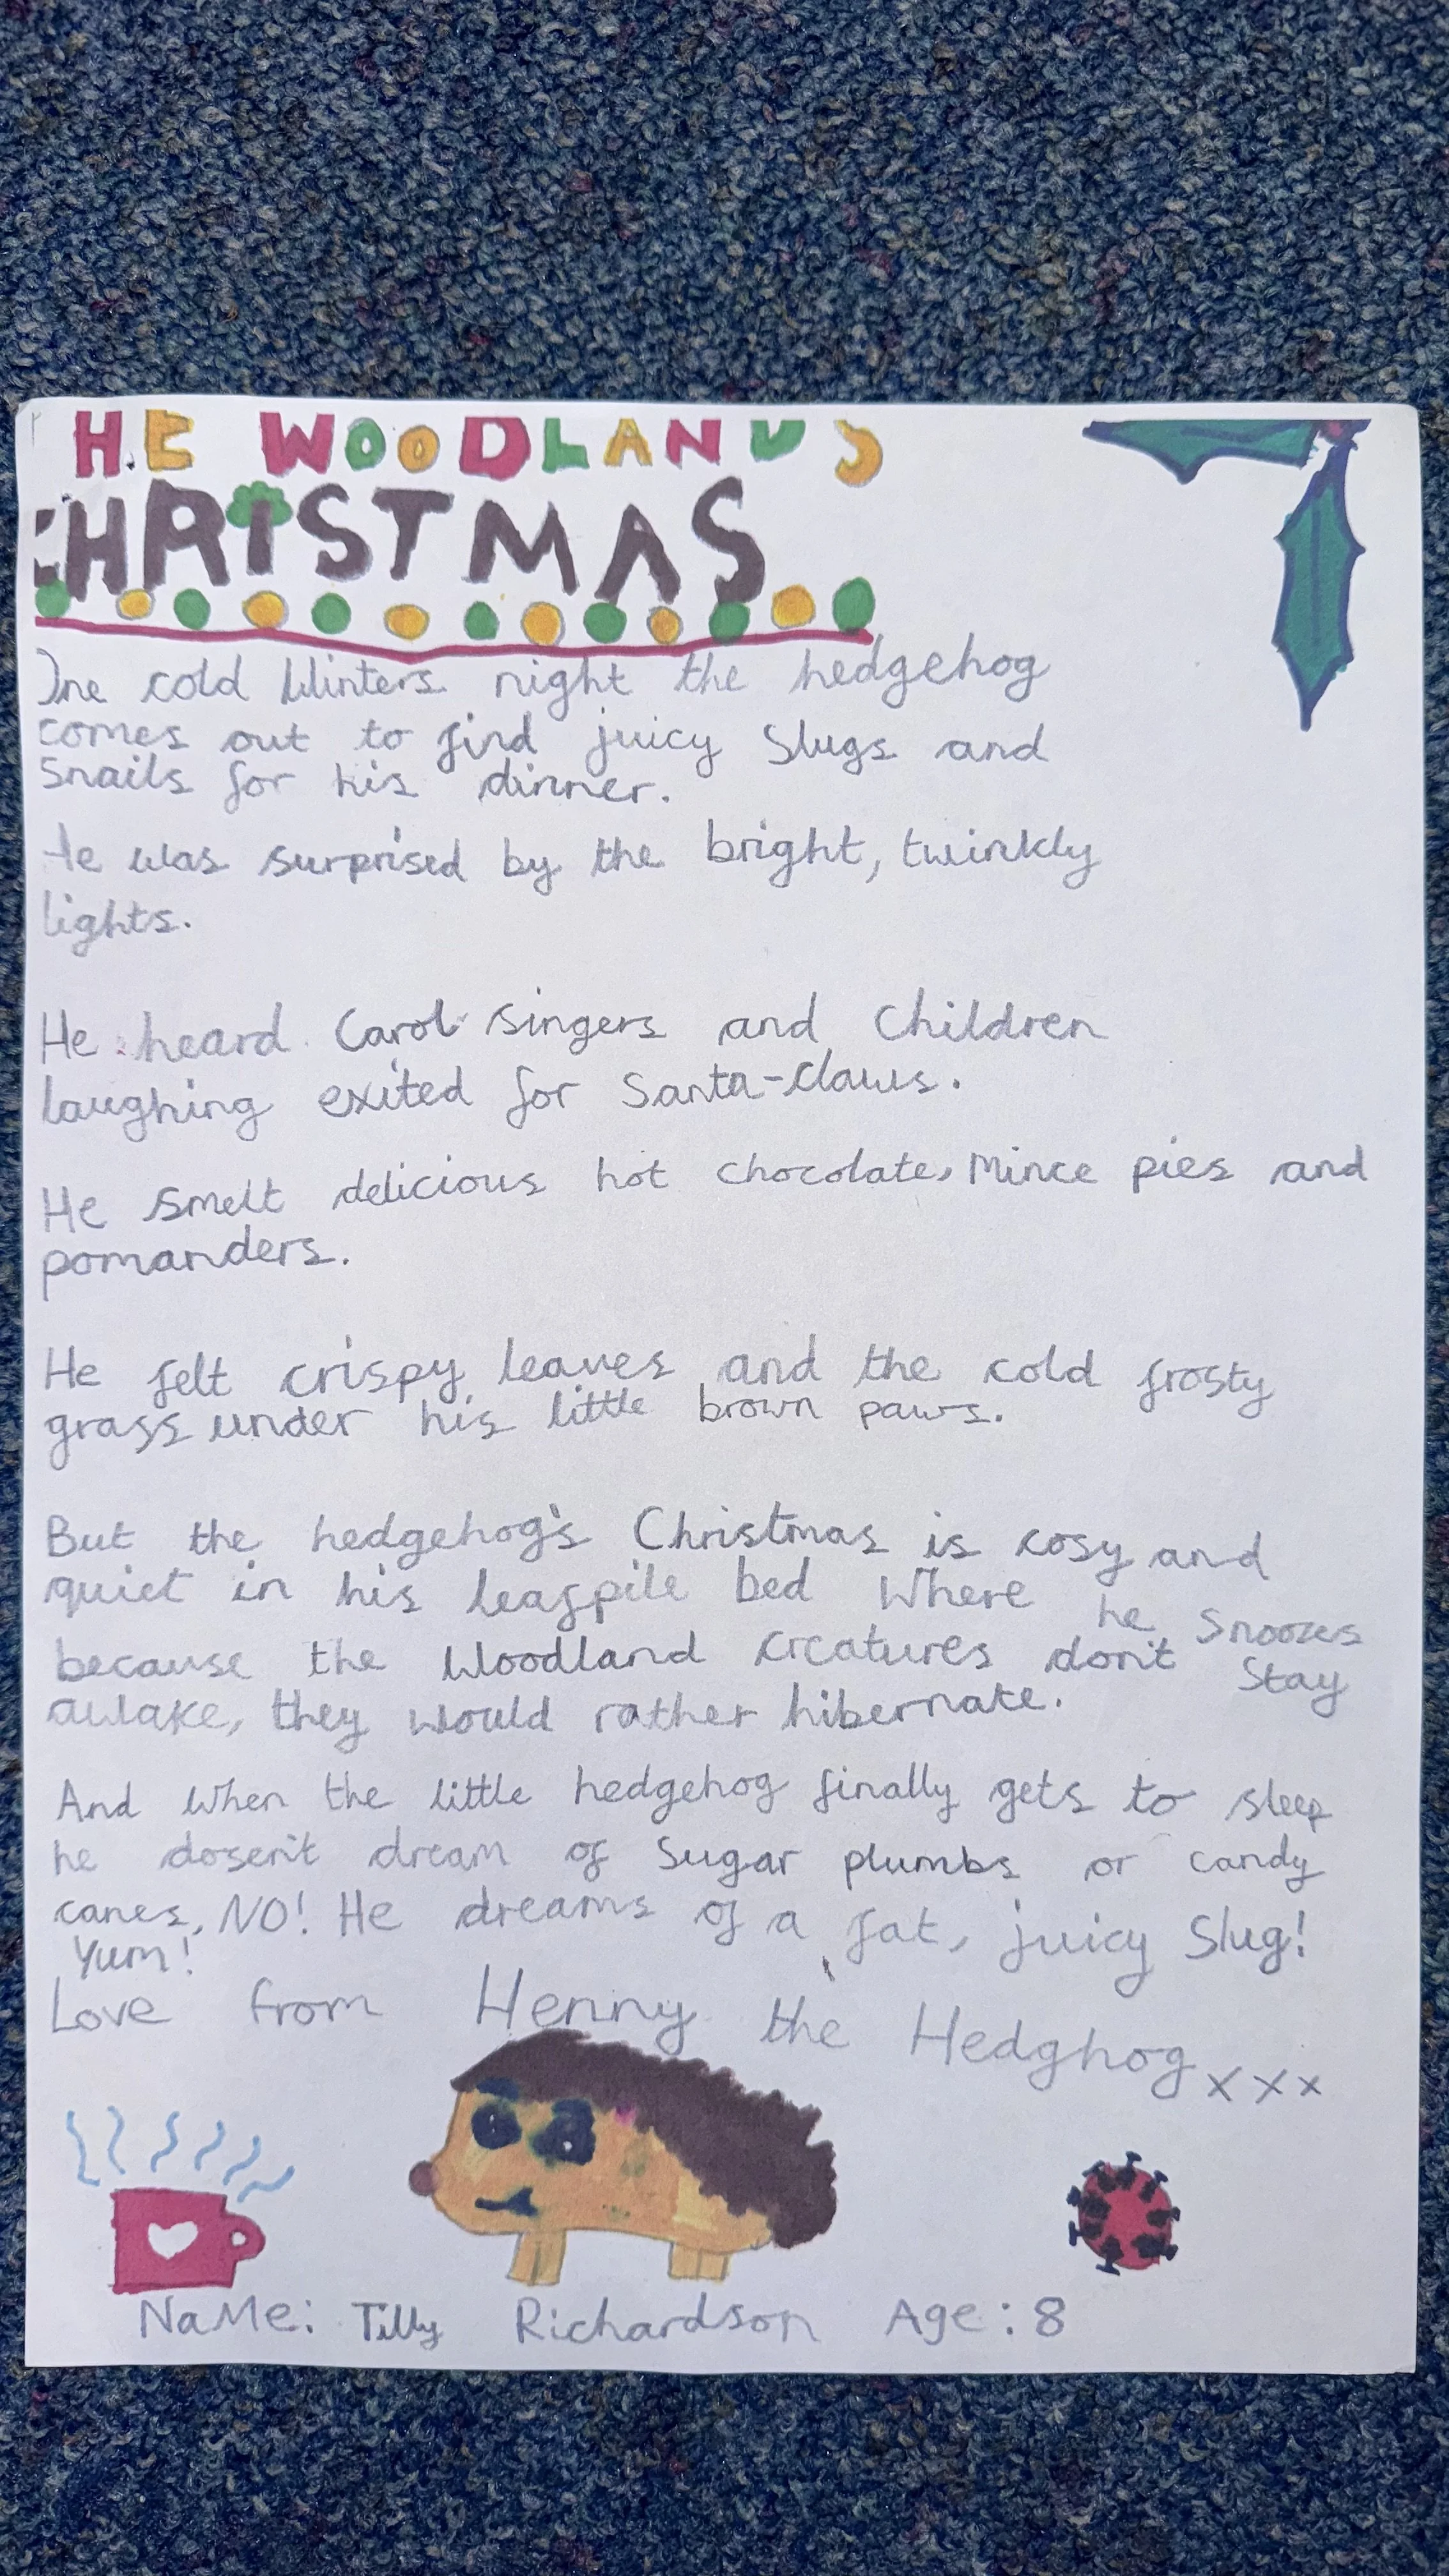 THE WOODLANDS
CHRISTMAS
One cold Winters night the hedgehog
comes out to find juicy Slugs and
Snails for his dinner.
He was surprised by the bright, twinkly
lights.
He heard Carol singers and Children
laughing exited for Santa-claws.
He smelt delicious hot chocolate, Mince pies and
pomanders.
He felt crispy leaves and the cold frosty
grass under his little brown paws.
But the hedgehog's Christmas is cosy and
quiet in his leafpile bed Where he Snoozes
because the Woodland creatures don't Stay
awake, they would rather hibernate.
And when the little hedgehog finally gets to sleep
he dosen't dream of Sugar plumbs or candy
canes, NO! He dreams of a fat, juicy Slug!
Yum!
Love from Henny the Hedghog xxx
NaMe: Tilly Richardson Age: 8